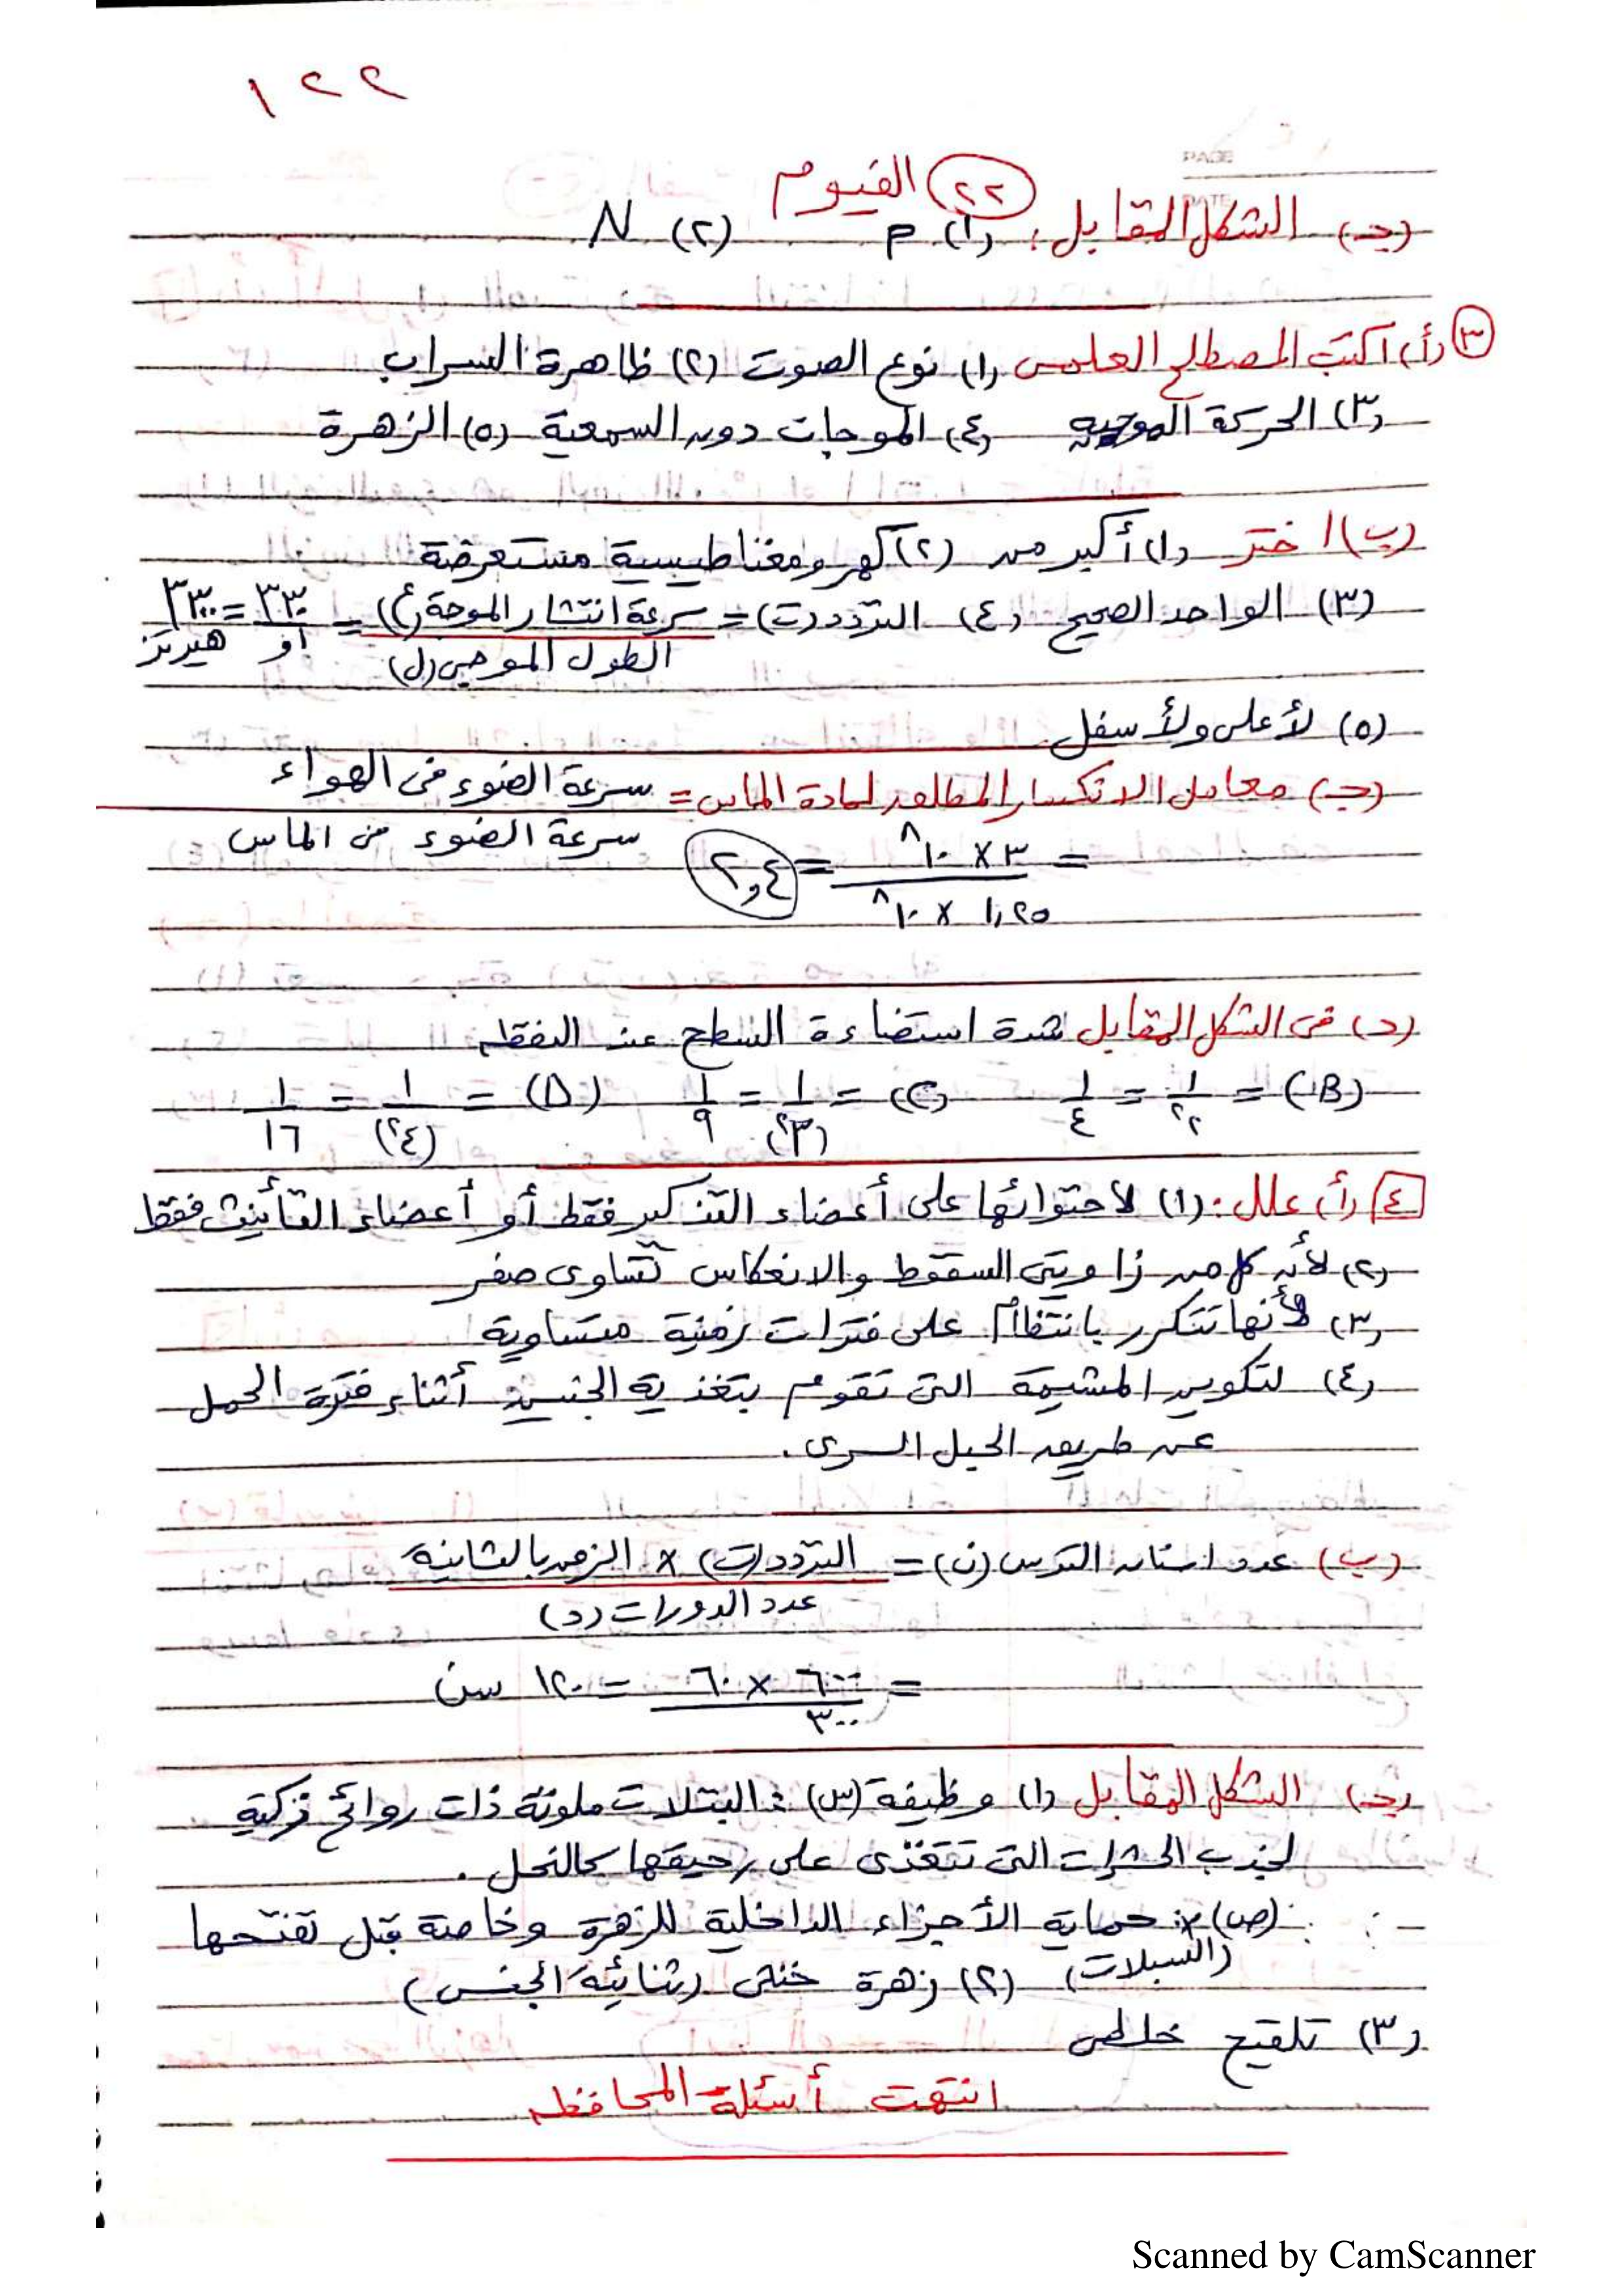 ١٢٢
PAGE
DATE
(٢٢) الفيوم
(جـ) الشكل المقابل: (١) P (٢) N
(٣) (أ) اكتب المصطلح العلمى (١) نوع الصوت (٢) ظاهرة السراب
(٣) الحركة الموجية (٤) الموجات دون السمعية (٥) الزهرة
(ب) اختر (١) أكبر من (٢) كهرومغناطيسية مستعرضة
(٣) الواحد الصحيح (٤) التردد (ت) = سرعة انتشار الموجة (ع) / الطول الموجى (ل) = ٣٣٠ / ٠٫١ = ٣٣٠٠ هيرتز
(٥) لأعلى ولأسفل
(جـ) معامل الانكسار المطلق لمادة الماس = سرعة الضوء فى الهواء
سرعة الضوء فى الماس
= ٣ × ١٠^٨ / ١٫٢٥ × ١٠^٨ = ٢٫٤
(د) فى الشكل المقابل شدة استضاءة السطح عند النقطة
(B) = ١/٢^٢ = ١/٤ (C) = ١/(٣^٢) = ١/٩ (D) = ١/(٤^٢) = ١/١٦
٤ (أ) علل: (١) لاحتوائها على أعضاء التذكير فقط أو أعضاء التأنيث فقط
(٢) لأن كل من زاويتى السقوط والانعكاس تساوى صفر
(٣) لأنها تتكرر بانتظام على فترات زمنية متساوية
(٤) لتكوين المشيمة التى تقوم بتغذية الجنين أثناء فترة الحمل
عن طريق الحبل السرى.
(ب) عدد أسنان الترس (ن) = التردد (ت) × الزمن بالثانية
عدد الدورات (د)
= ٦٠٠ × ٦٠ / ٣٠٠ = ١٢٠ سن
(جـ) الشكل المقابل (١) وظيفة (س): البتلات ملونة ذات روائح ذكية
لجذب الحشرات التى تتغذى على رحيقها كالنحل.
(ص): حماية الأجزاء الداخلية للزهرة وخاصة قبل تفتحها
(السبلات) (٢) زهرة خنثى (ثنائية الجنس)
(٣) تلقيح خلطى
انتهت أسئلة المحافظة
Scanned by CamScanner